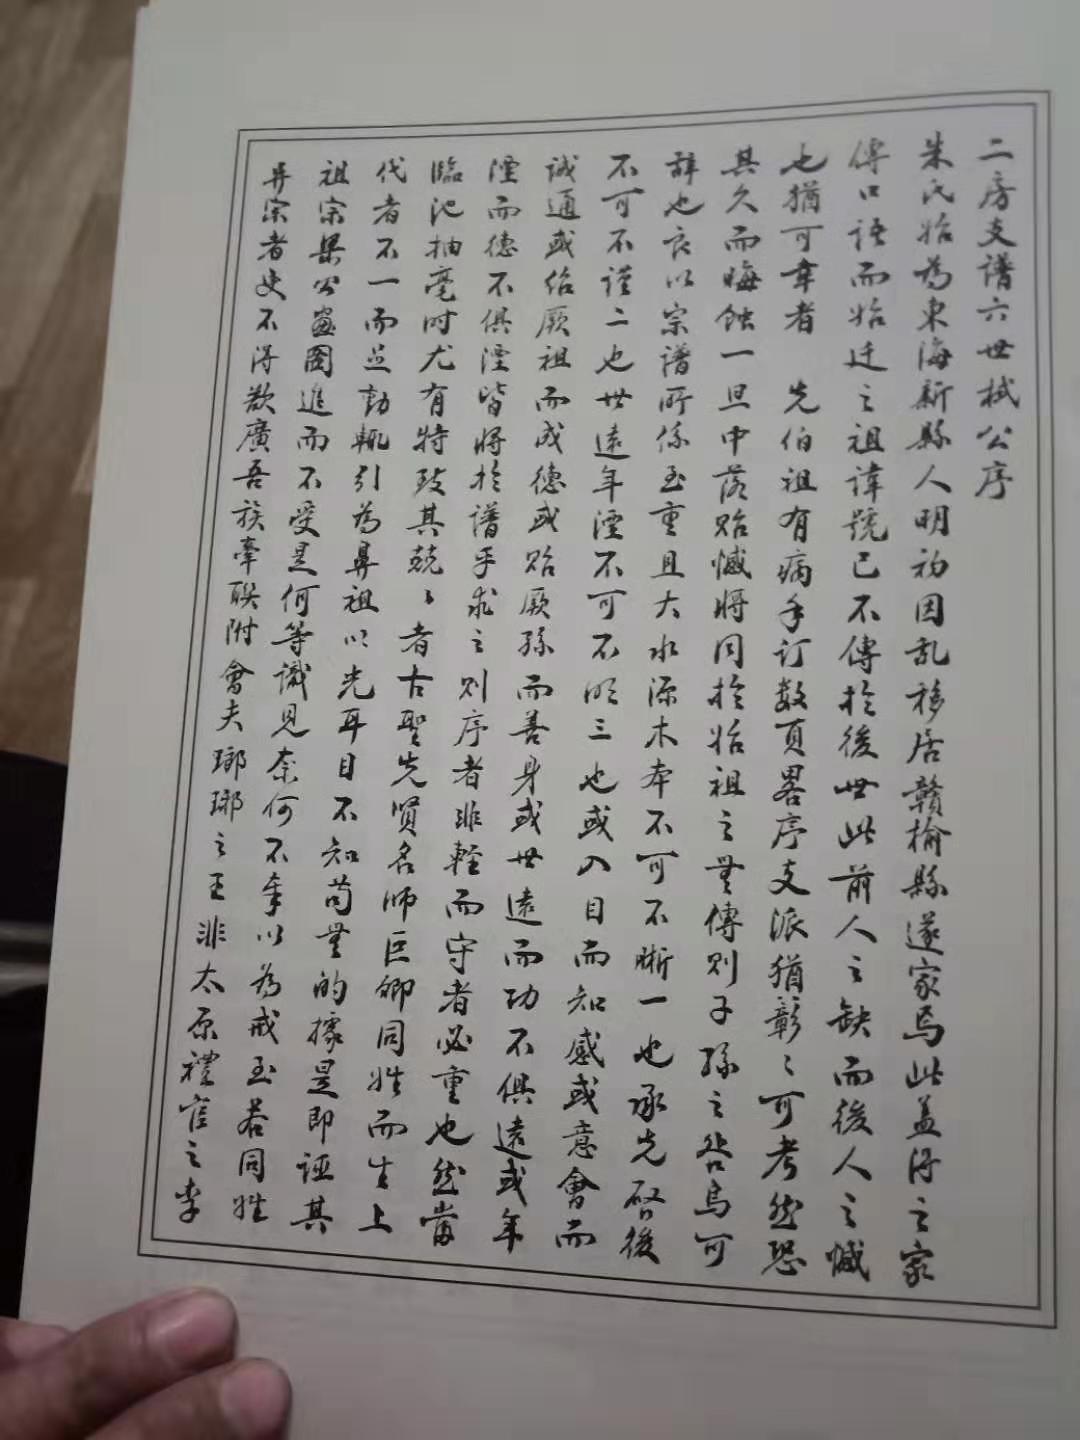 二房支譜六世栻公序
朱氏始為東海新縣人明初因乱移居贛榆縣遂家焉此盖得之家
傳口語而始迁之祖諱號已不傳於後世此前人之缺而後人之憾
也猶可幸者 先伯祖有病手订数頁畧序支派猶彰〻可考然恐
其久而晦蝕一旦中落貽憾將同於始祖之無傳則子孫之咎烏可
辞也良以宗譜所係至重且大水源木本不可不晰一也承先啓後
不可不谨二也世遠年湮不可不明三也或入目而知感或意會而
诚通或绍厥祖而成德或貽厥孫而善身或世遠而功不俱遠或年
湮而德不俱湮皆將於譜乎求之则序者非輕而守者必重也然當
臨池抽毫时尤有特致其兢〻者古聖先贤名师巨卿同姓而生上
代者不一而足動輒引為鼻祖以光耳目不知苟無的據是即誣其
祖宗梁公畫图進而不受是何等識見奈何不奉以為戒至若同姓
异宗者史不得欲廣吾族牽联附會夫瑯琊之王非太原禮官之李